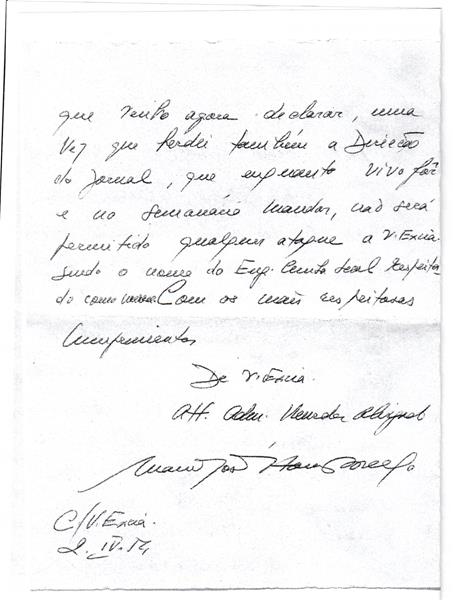 que venho agora declarar, uma
vez que herdei também a Direcção
do Jornal, que enquanto vivo fôr
e no semanário mandar, não será
permitido qualquer ataque a V. Excia.
sendo o nome do Eng. Cunha Leal respeita
do como merece. Com os mais respeitosos
cumprimentos
De V. Excia.
Att. Adm. Venerador Obrigado
C/V. Excia.
2. IV. 54